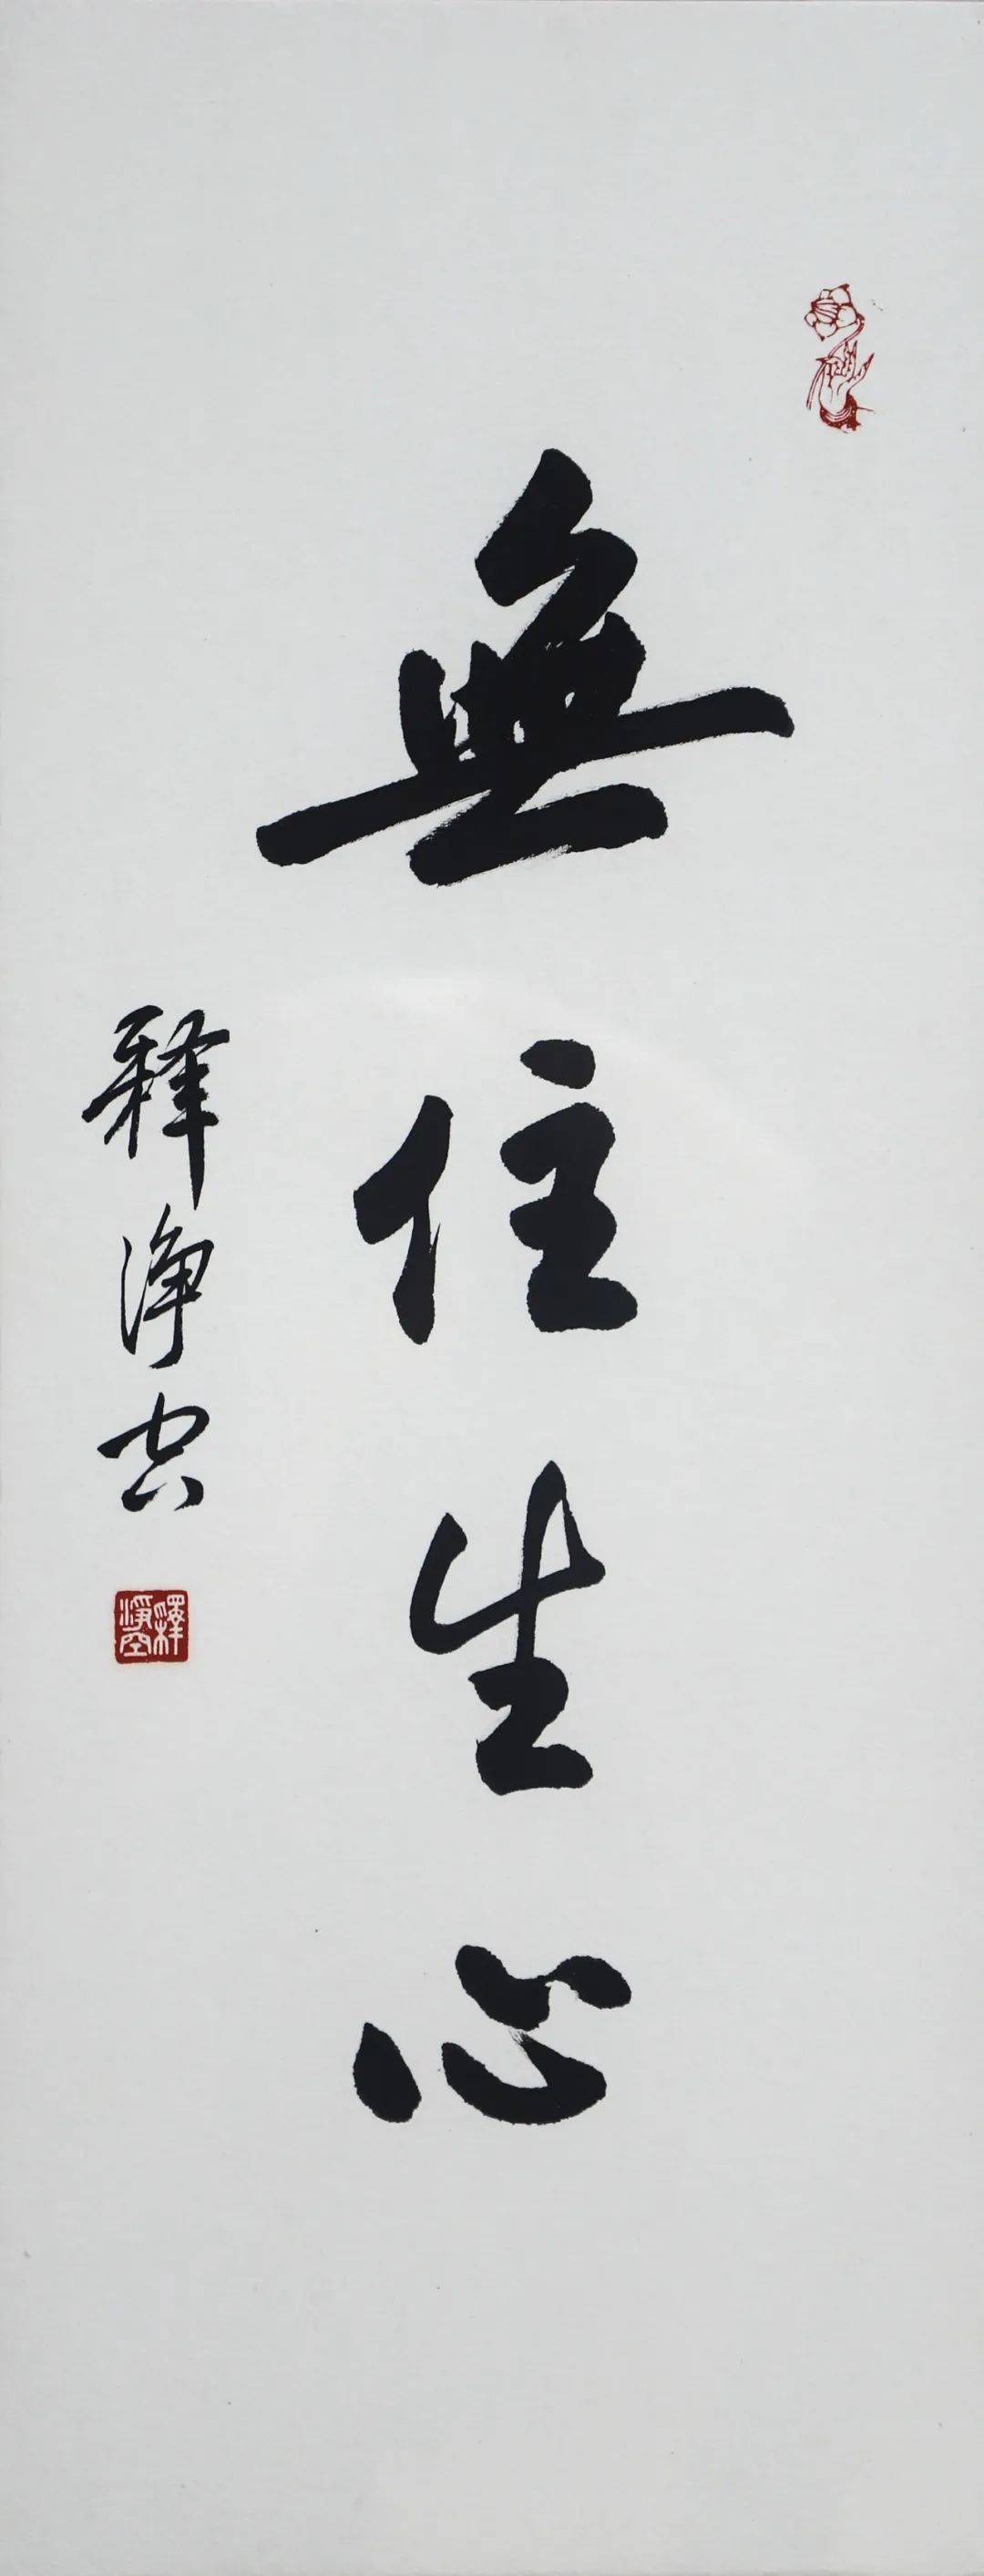 無住生心
释淨空
釋淨空